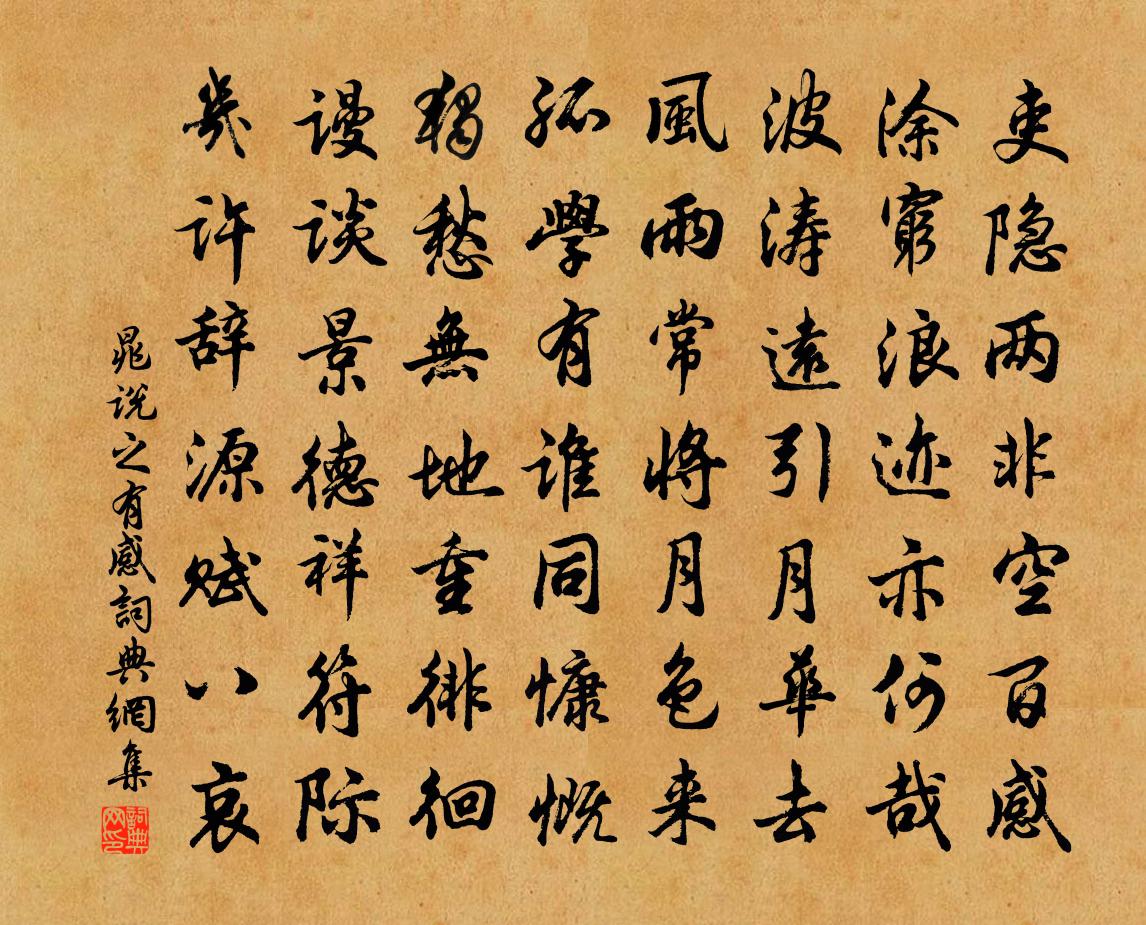 吏隐两非空百感
涂穷浪迹亦何哉
波涛遠引月華去
風雨常将月色来
孤學有谁同慷慨
独愁無地重徘徊
谩谈景德祥符际
幾许辞源赋八哀
晁说之有感詞典網集
詞典网印